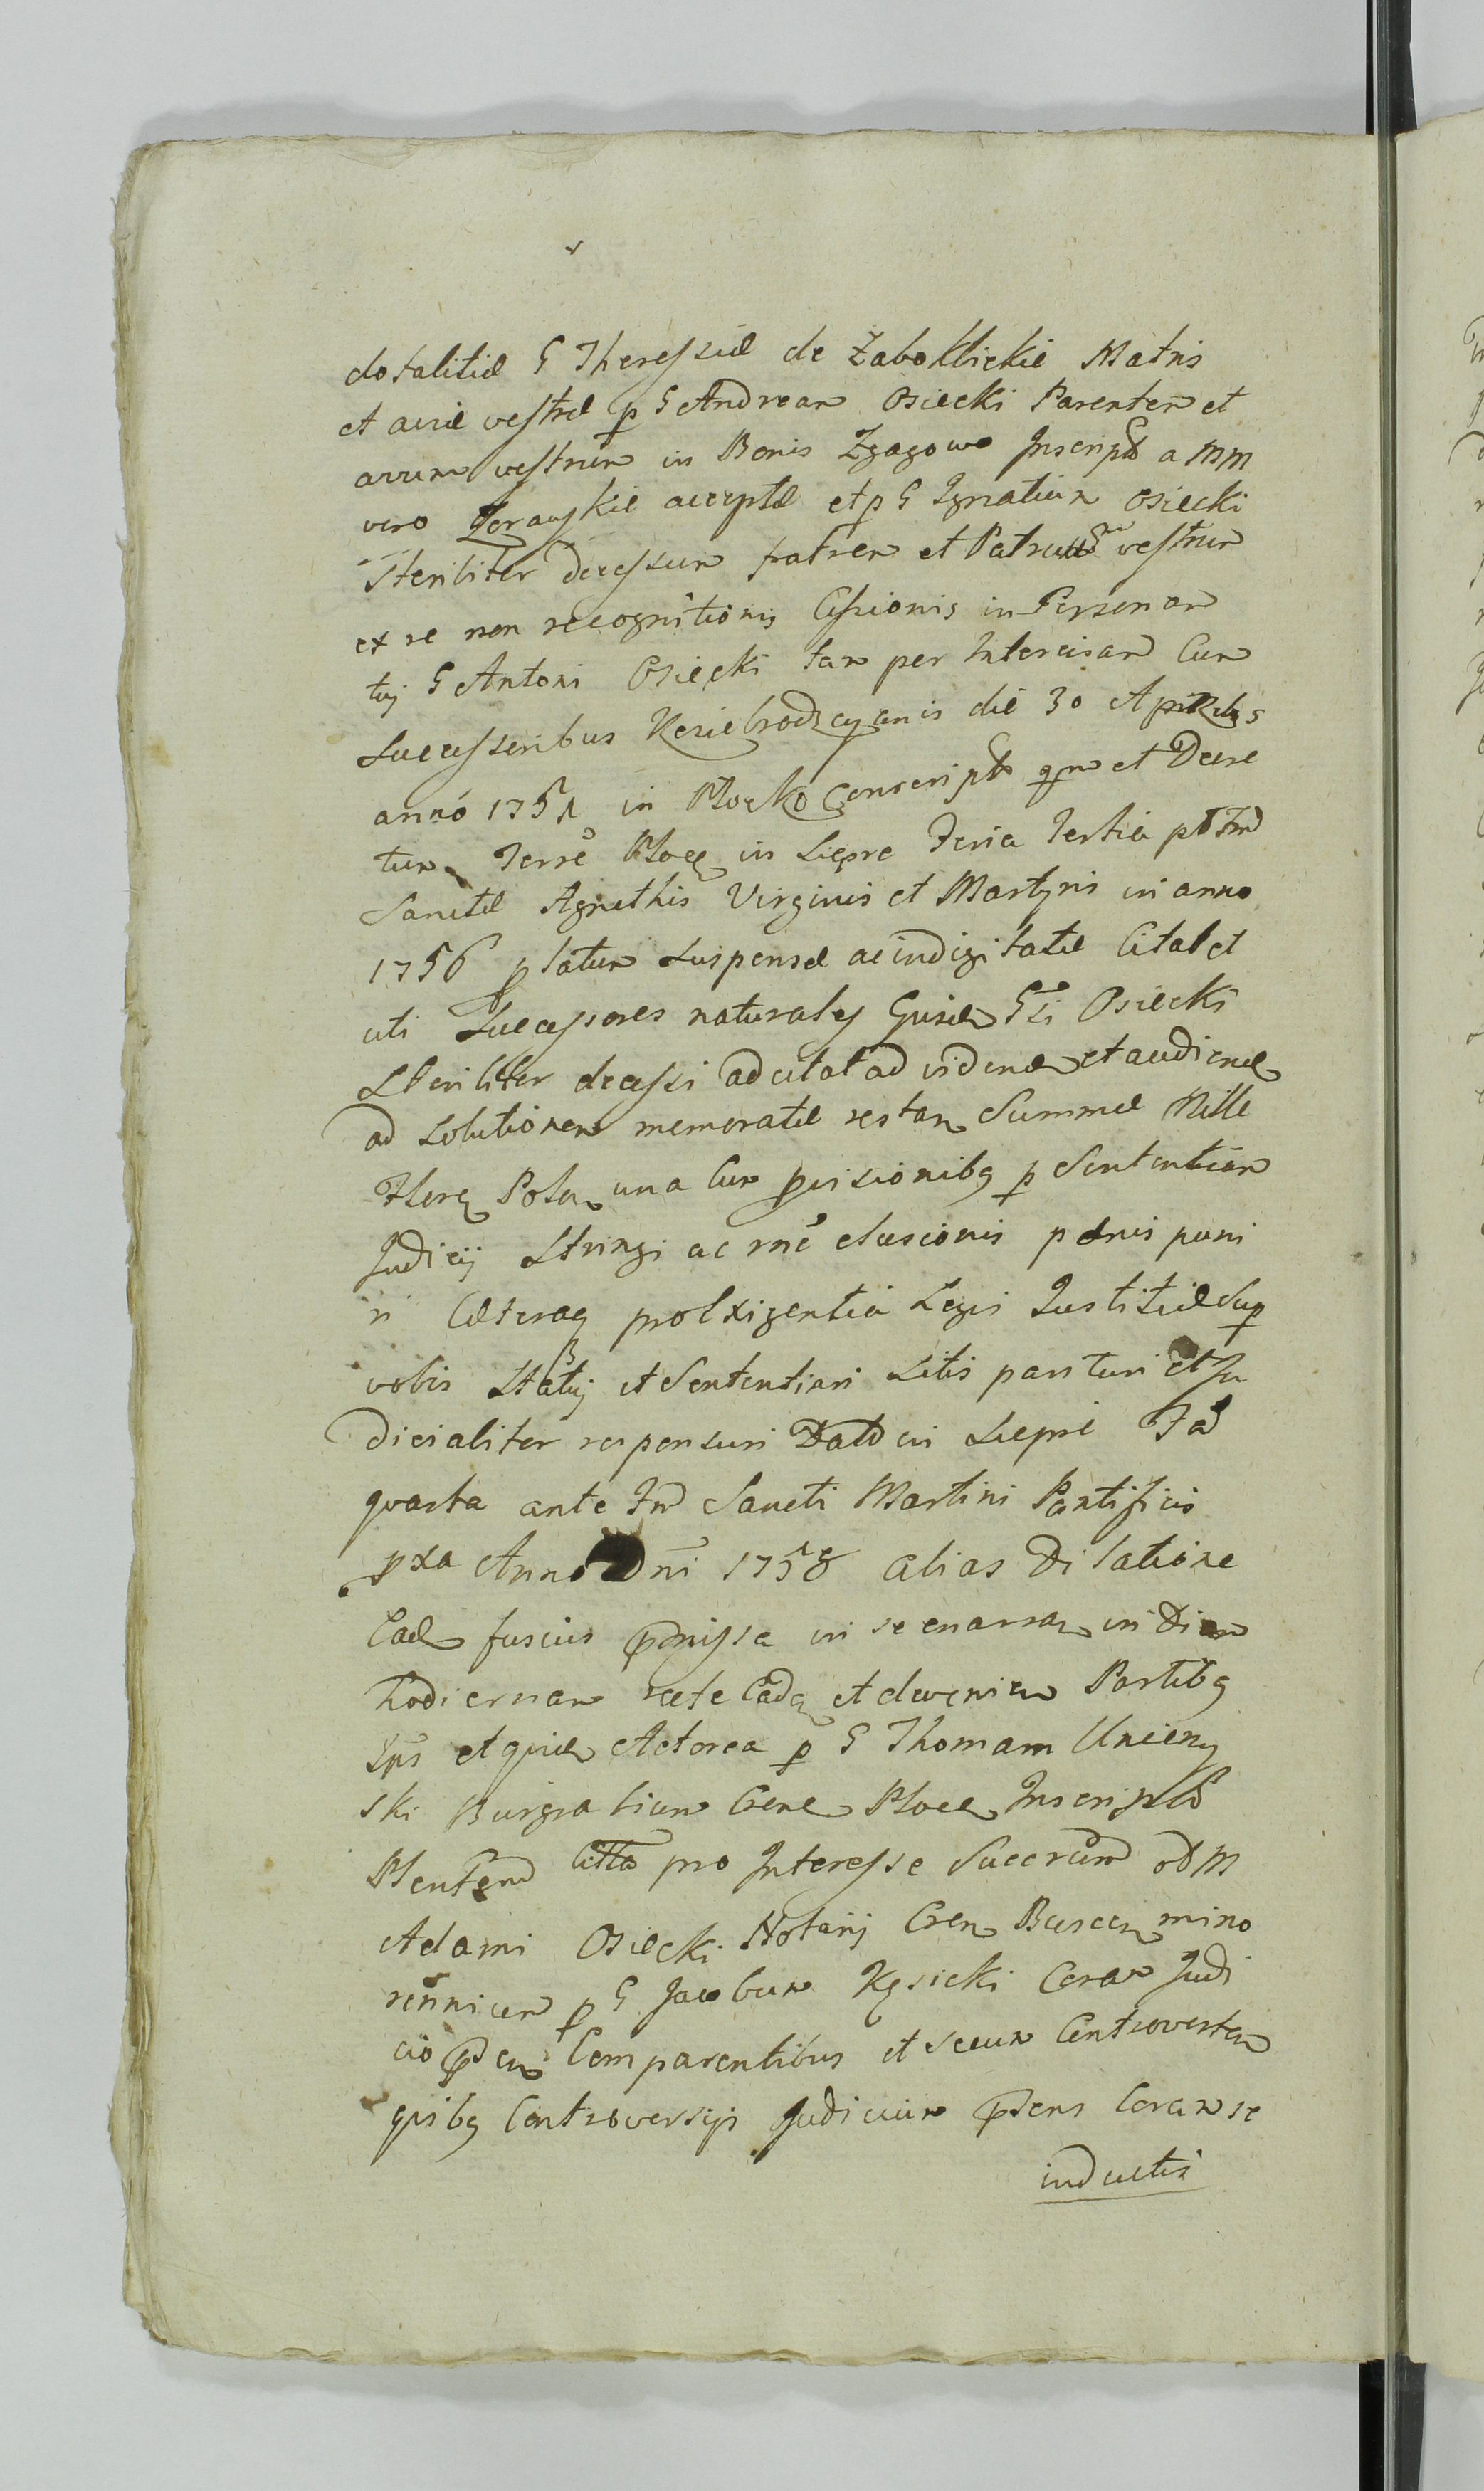 dotalitiæ G Theressiæ de Zaboklickie Matris
et aviæ vestræ p G Andream Osiecki Parentem et
avum vestrum in Bonis Zgagowo Inscript a MM
vero acceptæ et p G Ignatium Osiecki
Steriliter decessum fratrem et Patruum vestrum
ex re non recognitionis Cessionis in Personam
tuj G Antoni Osiecki tam per Intercisam Cum
Successoribus die 30 Aprilis
anno 1751 in Plocko Conscript qm et Decre
tum Terre Ploc in Siepre Feria Tertia pt Fm
Sanctæ Agnethis Virginis et Martyris in anno
1756 p latum suspensæ ac indigitatæ Citat et
uti Successores naturales Gsi Osiecki
Steriliter decessi ad citat ad vidend et audiend
ad Solutionem memoratæ restan Summæ Mille
Flor Polon una Cum provisionibq p Sententiam
Judicij Stringi ac rne elusionis pænis puni
ri Cæteraq prolxigentia Legis Justitiæ Sup
vobis Statuj et Sententiari Litis parituri et Ju
dicialiter responsuri Datt in Siepre Fa
quarta ante Fm Sancti Martini Pontificis
pxa Anno Dni 1758 alias Dilatione
Cad fusius pmissa in se enarran in Diem
hodiernam recte Caden et devenien Partibq
Ipis et quid Actorea p G Thomam Unieny
ski Burgrabium Cene Ploce Inscript
Plentend Citta pro Interesse Succrum od M
Adami Osiecki Notarij Cren mino
rennium p G Jacobum Kęsicki Coram Judi
cio pden Comparentibus et secum Controverten
quibq Controversijs Judicium pdens Coram se
inductis